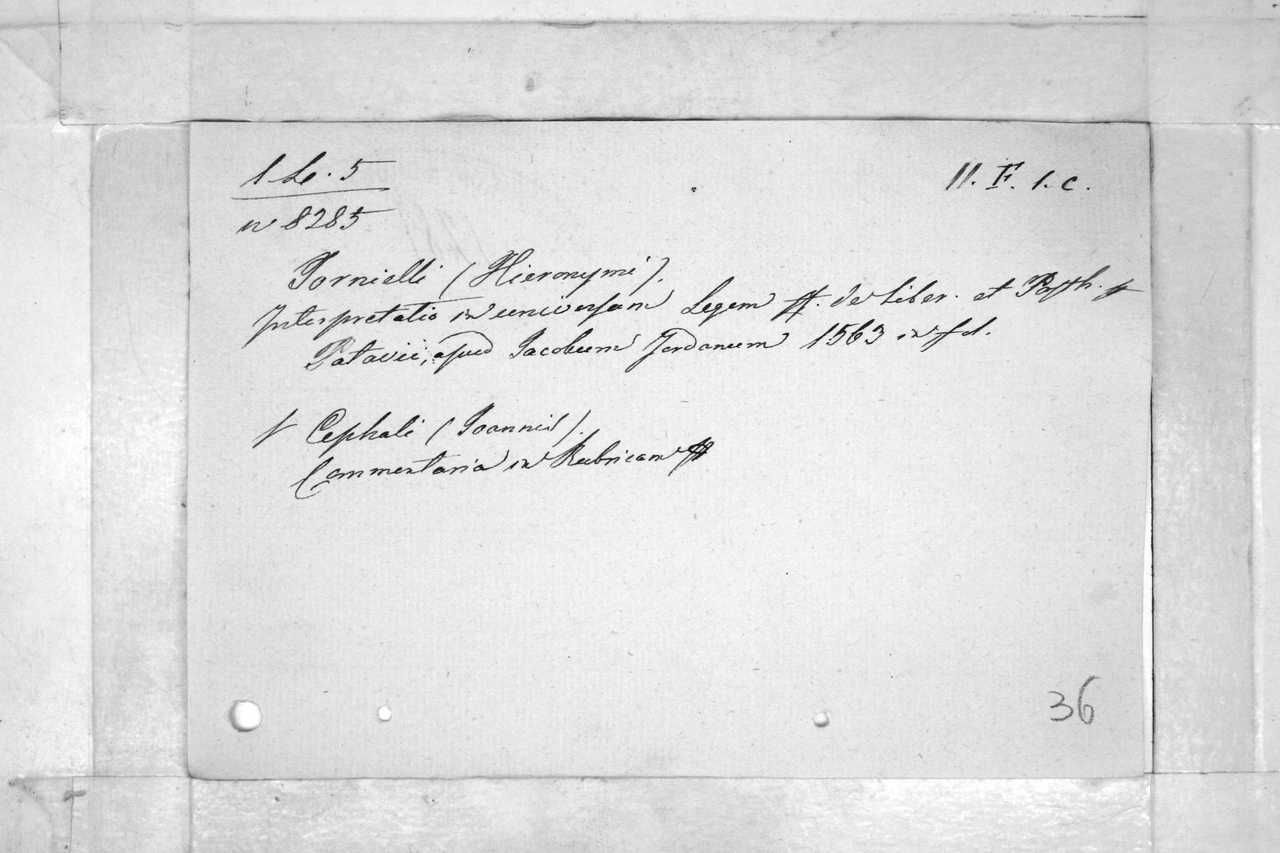 1 Le. 5
11. F. 1. c.
n 8285
Tornielli (Hieronymi).
Interpretatio in universam Legem ff. de Liber. et Posth.
Patavii, apud Jacobum Jordanum 1563 in fol.
Cephali (Joannis).
Commentaria in Rubricam ff
36